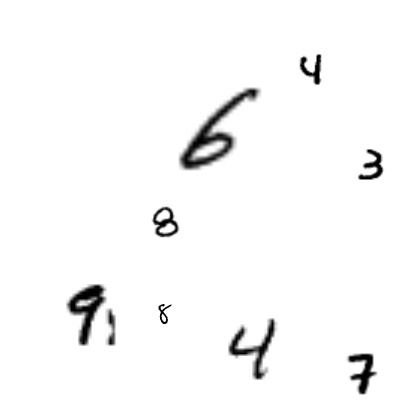 4
6
3
8
9 8 4 7